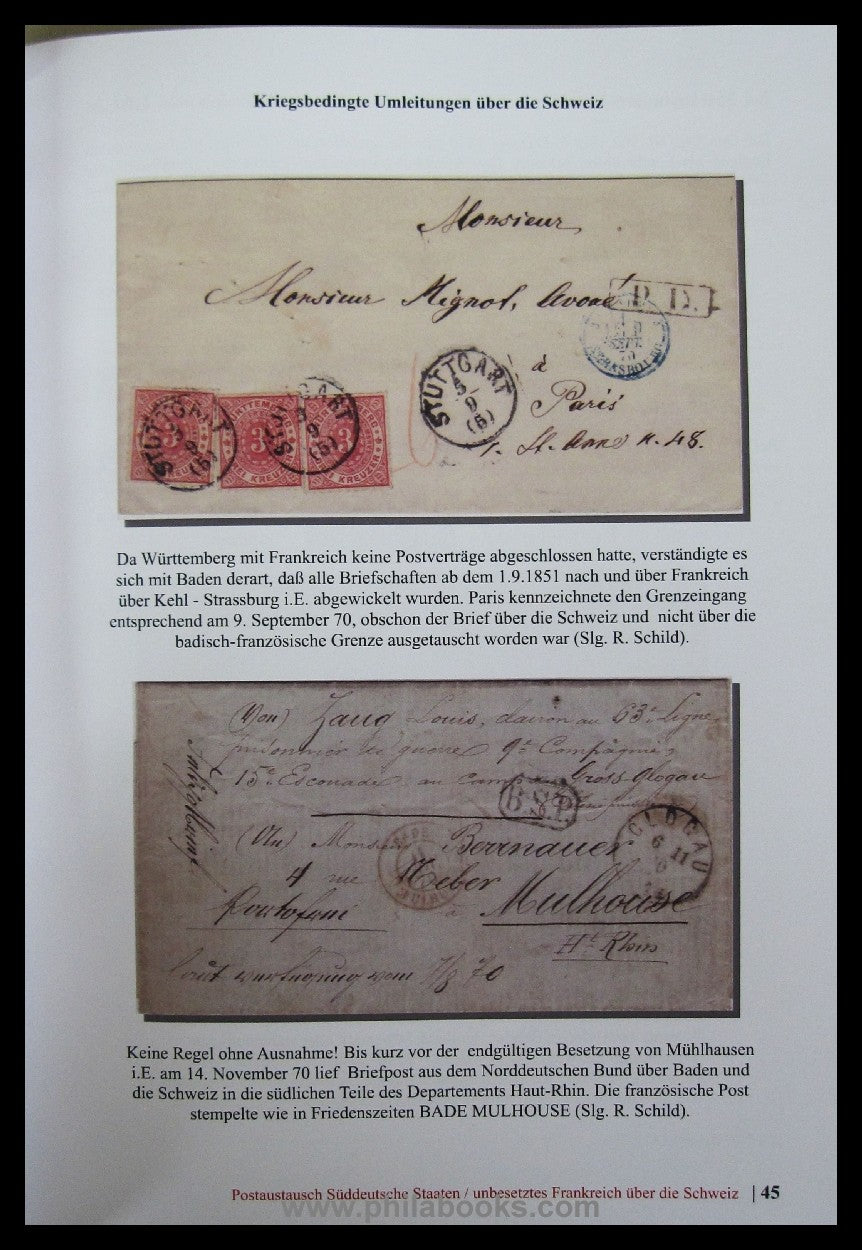 Kriegsbedingte Umleitungen über die Schweiz
Monsieur
Monsieur Mignot, Avoué
P. D.
à
Paris
r. St. Anne n. 48.
STUTTGART
5
9
(5)
STUTTGART
9
(5)
STUTTGART
9
(5)
3
3
3
DREI KREUZER
SEPT
70
Da Württemberg mit Frankreich keine Postverträge abgeschlossen hatte, verständigte es
sich mit Baden derart, daß alle Briefschaften ab dem 1.9.1851 nach und über Frankreich
über Kehl - Strassburg i.E. abgewickelt wurden. Paris kennzeichnete den Grenzeingang
entsprechend am 9. September 70, obschon der Brief über die Schweiz und nicht über die
badisch-französische Grenze ausgetauscht worden war (Slg. R. Schild).
(Von) Zaug Louis, clairon au 63e Ligne
prisonnier de guerre 9e Compagnie
15e Escouade au camp Gross Glogau
B.S.P.
GLOGAU
6 11
(An) Monsieur Bernauer
4 rue Weber
Portofrei à Mulhouse
Ht. Rhin
laut verfügung vom 7/8 70
Keine Regel ohne Ausnahme! Bis kurz vor der endgültigen Besetzung von Mühlhausen
i.E. am 14. November 70 lief Briefpost aus dem Norddeutschen Bund über Baden und
die Schweiz in die südlichen Teile des Departements Haut-Rhin. Die französische Post
stempelte wie in Friedenszeiten BADE MULHOUSE (Slg. R. Schild).
Postaustausch Süddeutsche Staaten / unbesetztes Frankreich über die Schweiz | 45
www.philabooks.com